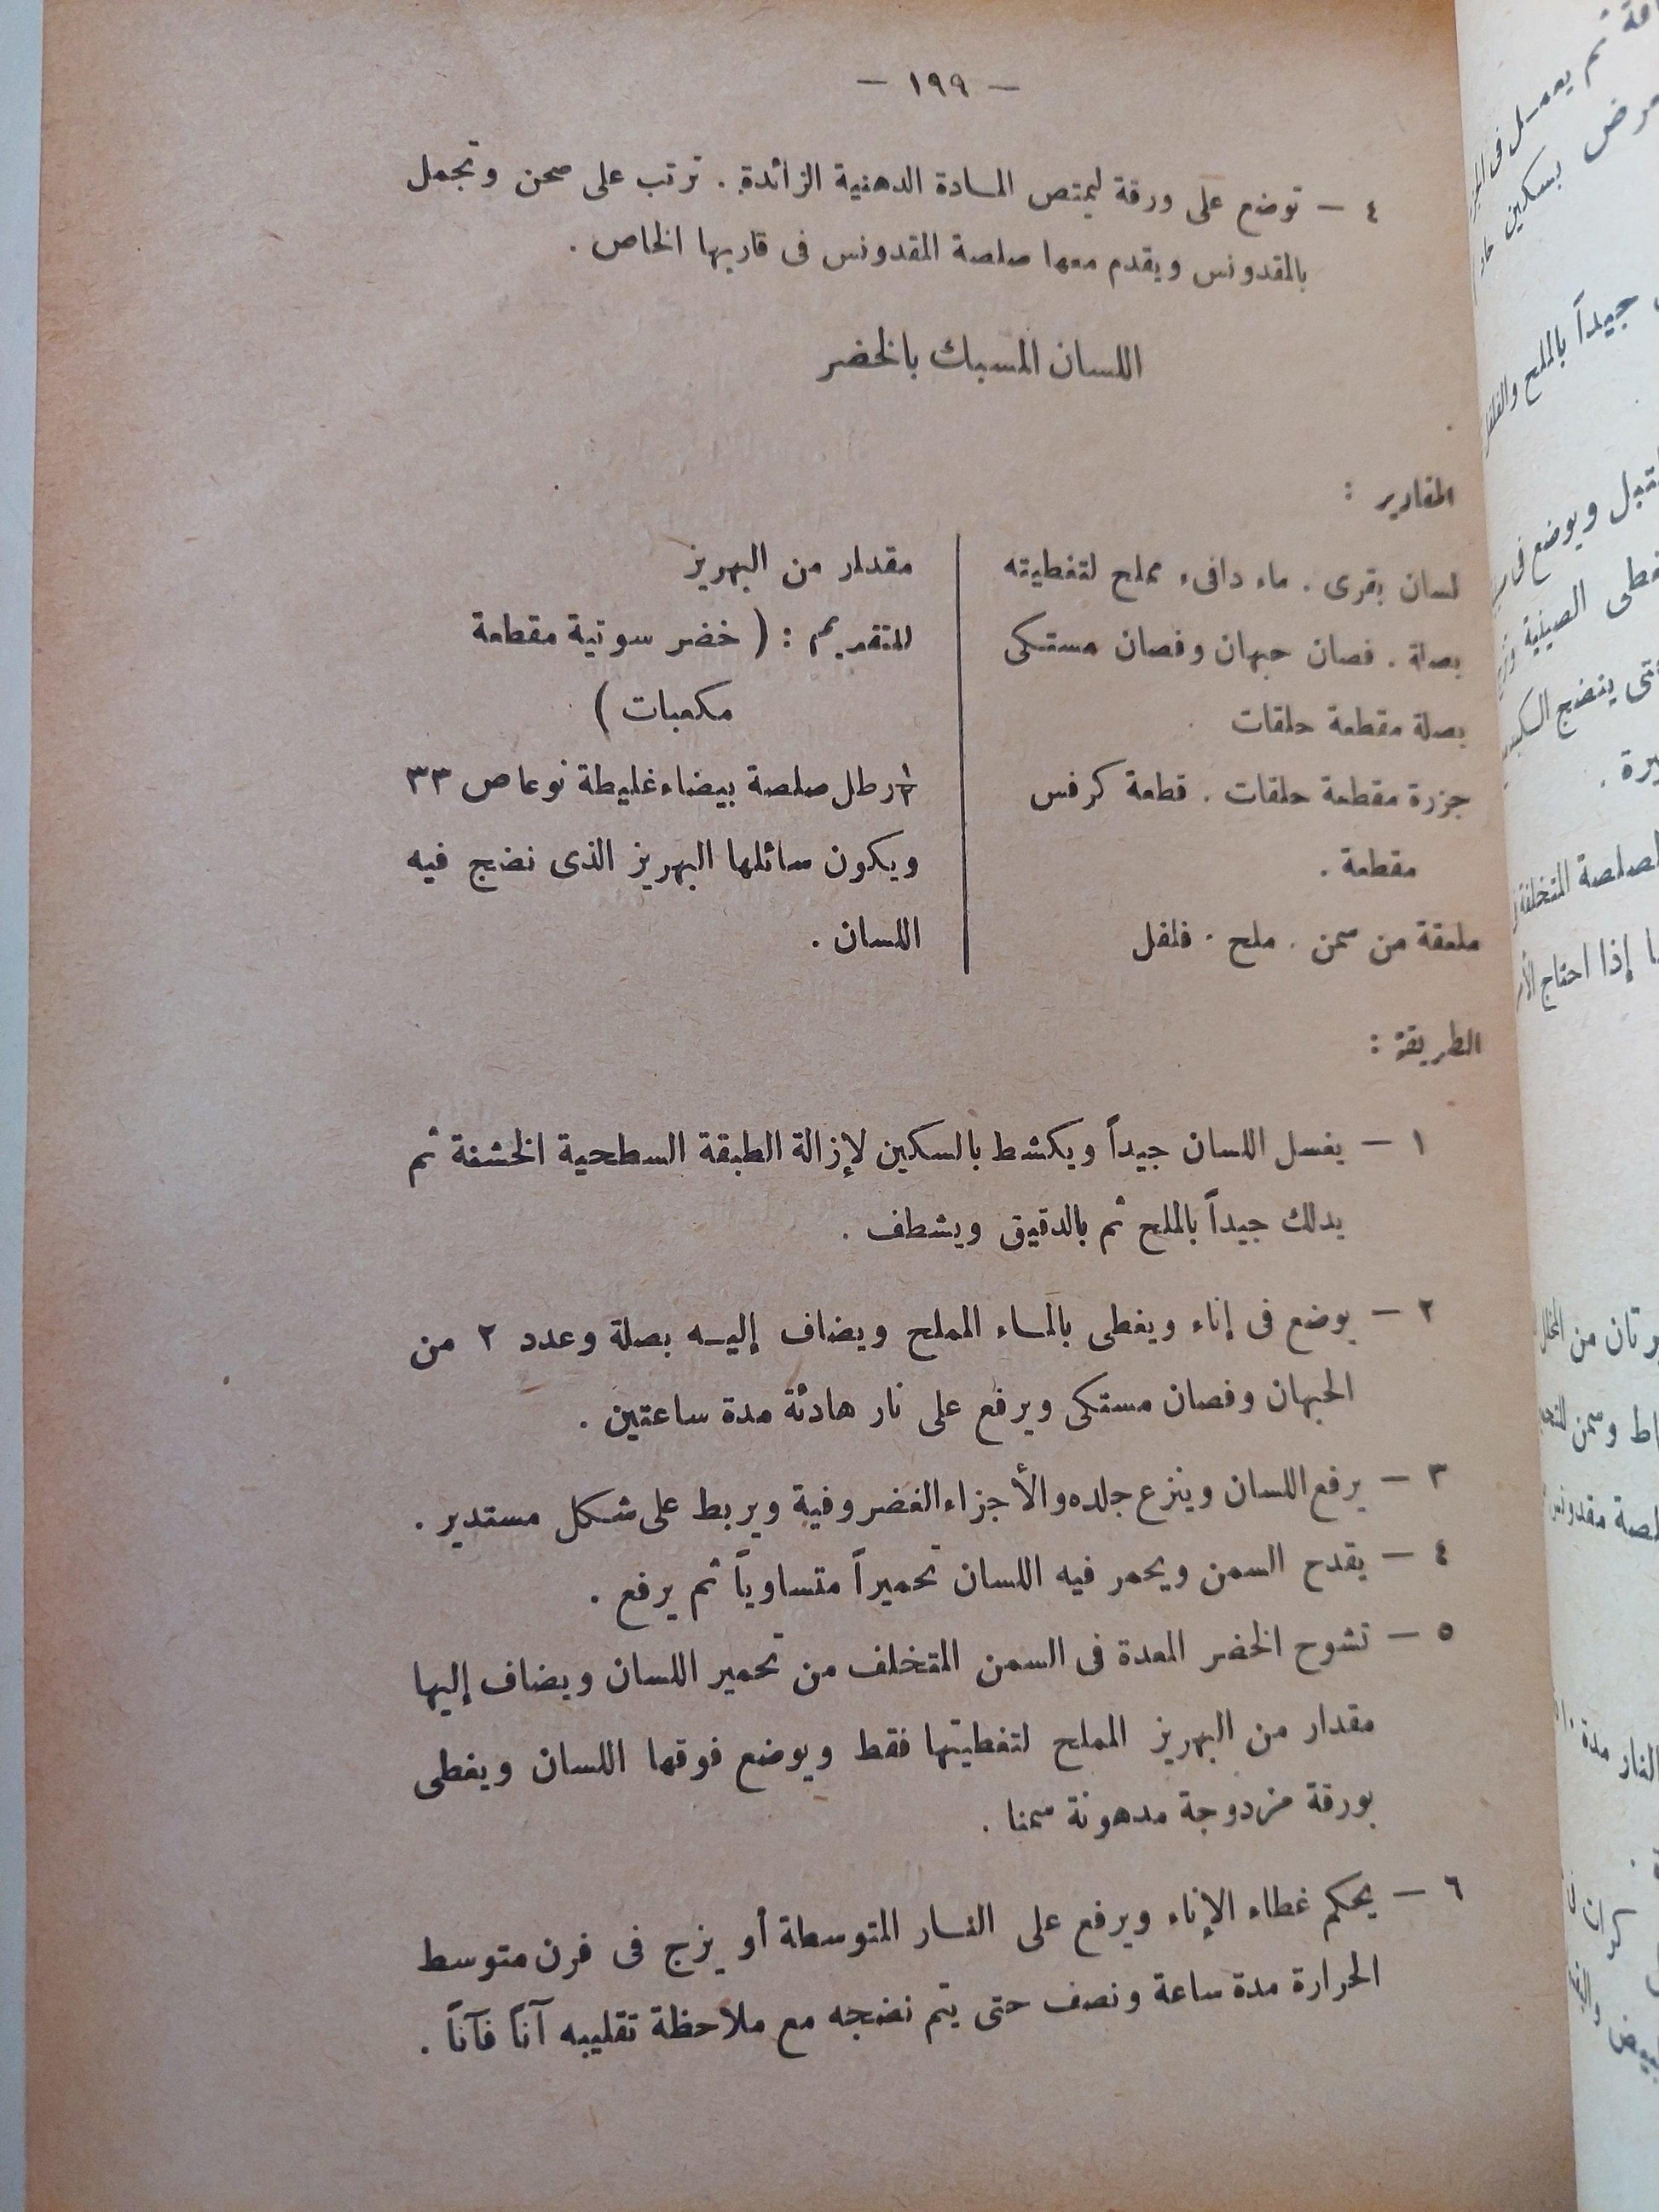 — ١٩٩ —
٤ — توضع على ورقة ليمتص المادة الدهنية الزائدة . ترتب على صحن وتجمل
بالمقدونس ويقدم معها صلصة المقدونس فى قاربها الخاص .
اللسان المسبك بالخضر
المقادير :
لسان بقرى . ماء دافىء مملح لتغطيته
بصلة . فصان حبهان وفصان مستكى
بصلة مقطعة حلقات
جزرة مقطعة حلقات . قطعة كرفس
مقطعة .
ملعقة من سمن . ملح . فلفل
مقدار من البهريز
للتقديم : ( خضر سوتية مقطعة
مكعبات )
١/٢ رطل صلصة بيضاء غليظة نوعا ص ٣٣
ويكون سائلها البهريز الذى نضج فيه
اللسان .
الطريقة :
١ — يغسل اللسان جيداً ويكشط بالسكين لإزالة الطبقة السطحية الخشنة ثم
يدلك جيداً بالملح ثم بالدقيق ويشطف .
٢ — يوضع فى إناء ويغطى بالماء المملح ويضاف إليه بصلة وعدد ٢ من
الحبهان وفصان مستكى ويرفع على نار هادئة مدة ساعتين .
٣ — يرفع اللسان وينزع جلده والأجزاء الغضروفية ويربط على شكل مستدير .
٤ — يقدح السمن ويحمر فيه اللسان تحميراً متساوياً ثم يرفع .
٥ — تشوح الخضر المعدة فى السمن المتخلف من تحمير اللسان ويضاف إليها
مقدار من البهريز المملح لتغطيتها فقط ويوضع فوقها اللسان ويغطى
بورقة مزدوجة مدهونة سمنا .
٦ — يحكم غطاء الإناء ويرفع على النار المتوسطة أو يزج فى فرن متوسط
الحرارة مدة ساعة ونصف حتى يتم نضجه مع ملاحظة تقليبه آناً فآناً .
ثم يعمل فى
بسكين
جيداً بالملح والفلفل
ويوضع فى
الصينية
ينضج
الصلصة المتخلفة
إذا احتاج
من
وسمن
النار مدة